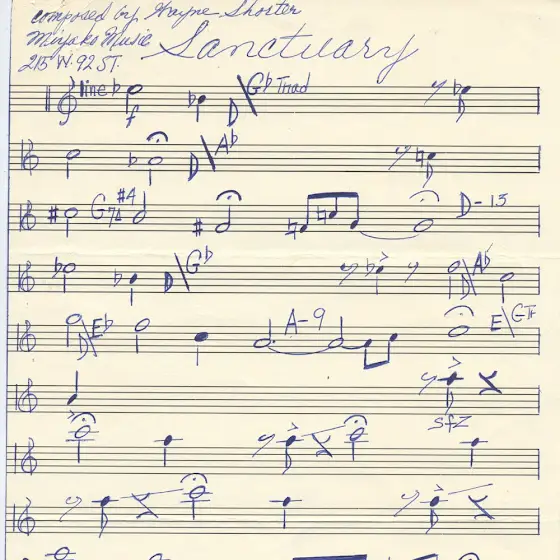 composed by Wayne Shorter
Miyako Music
215 W. 92 ST.
Sanctuary
line f D\G♭ Triad
D\A♭
G7A #4 D-15
D\G♭ D\A♭
D\E♭ A-9 E\G
sfz